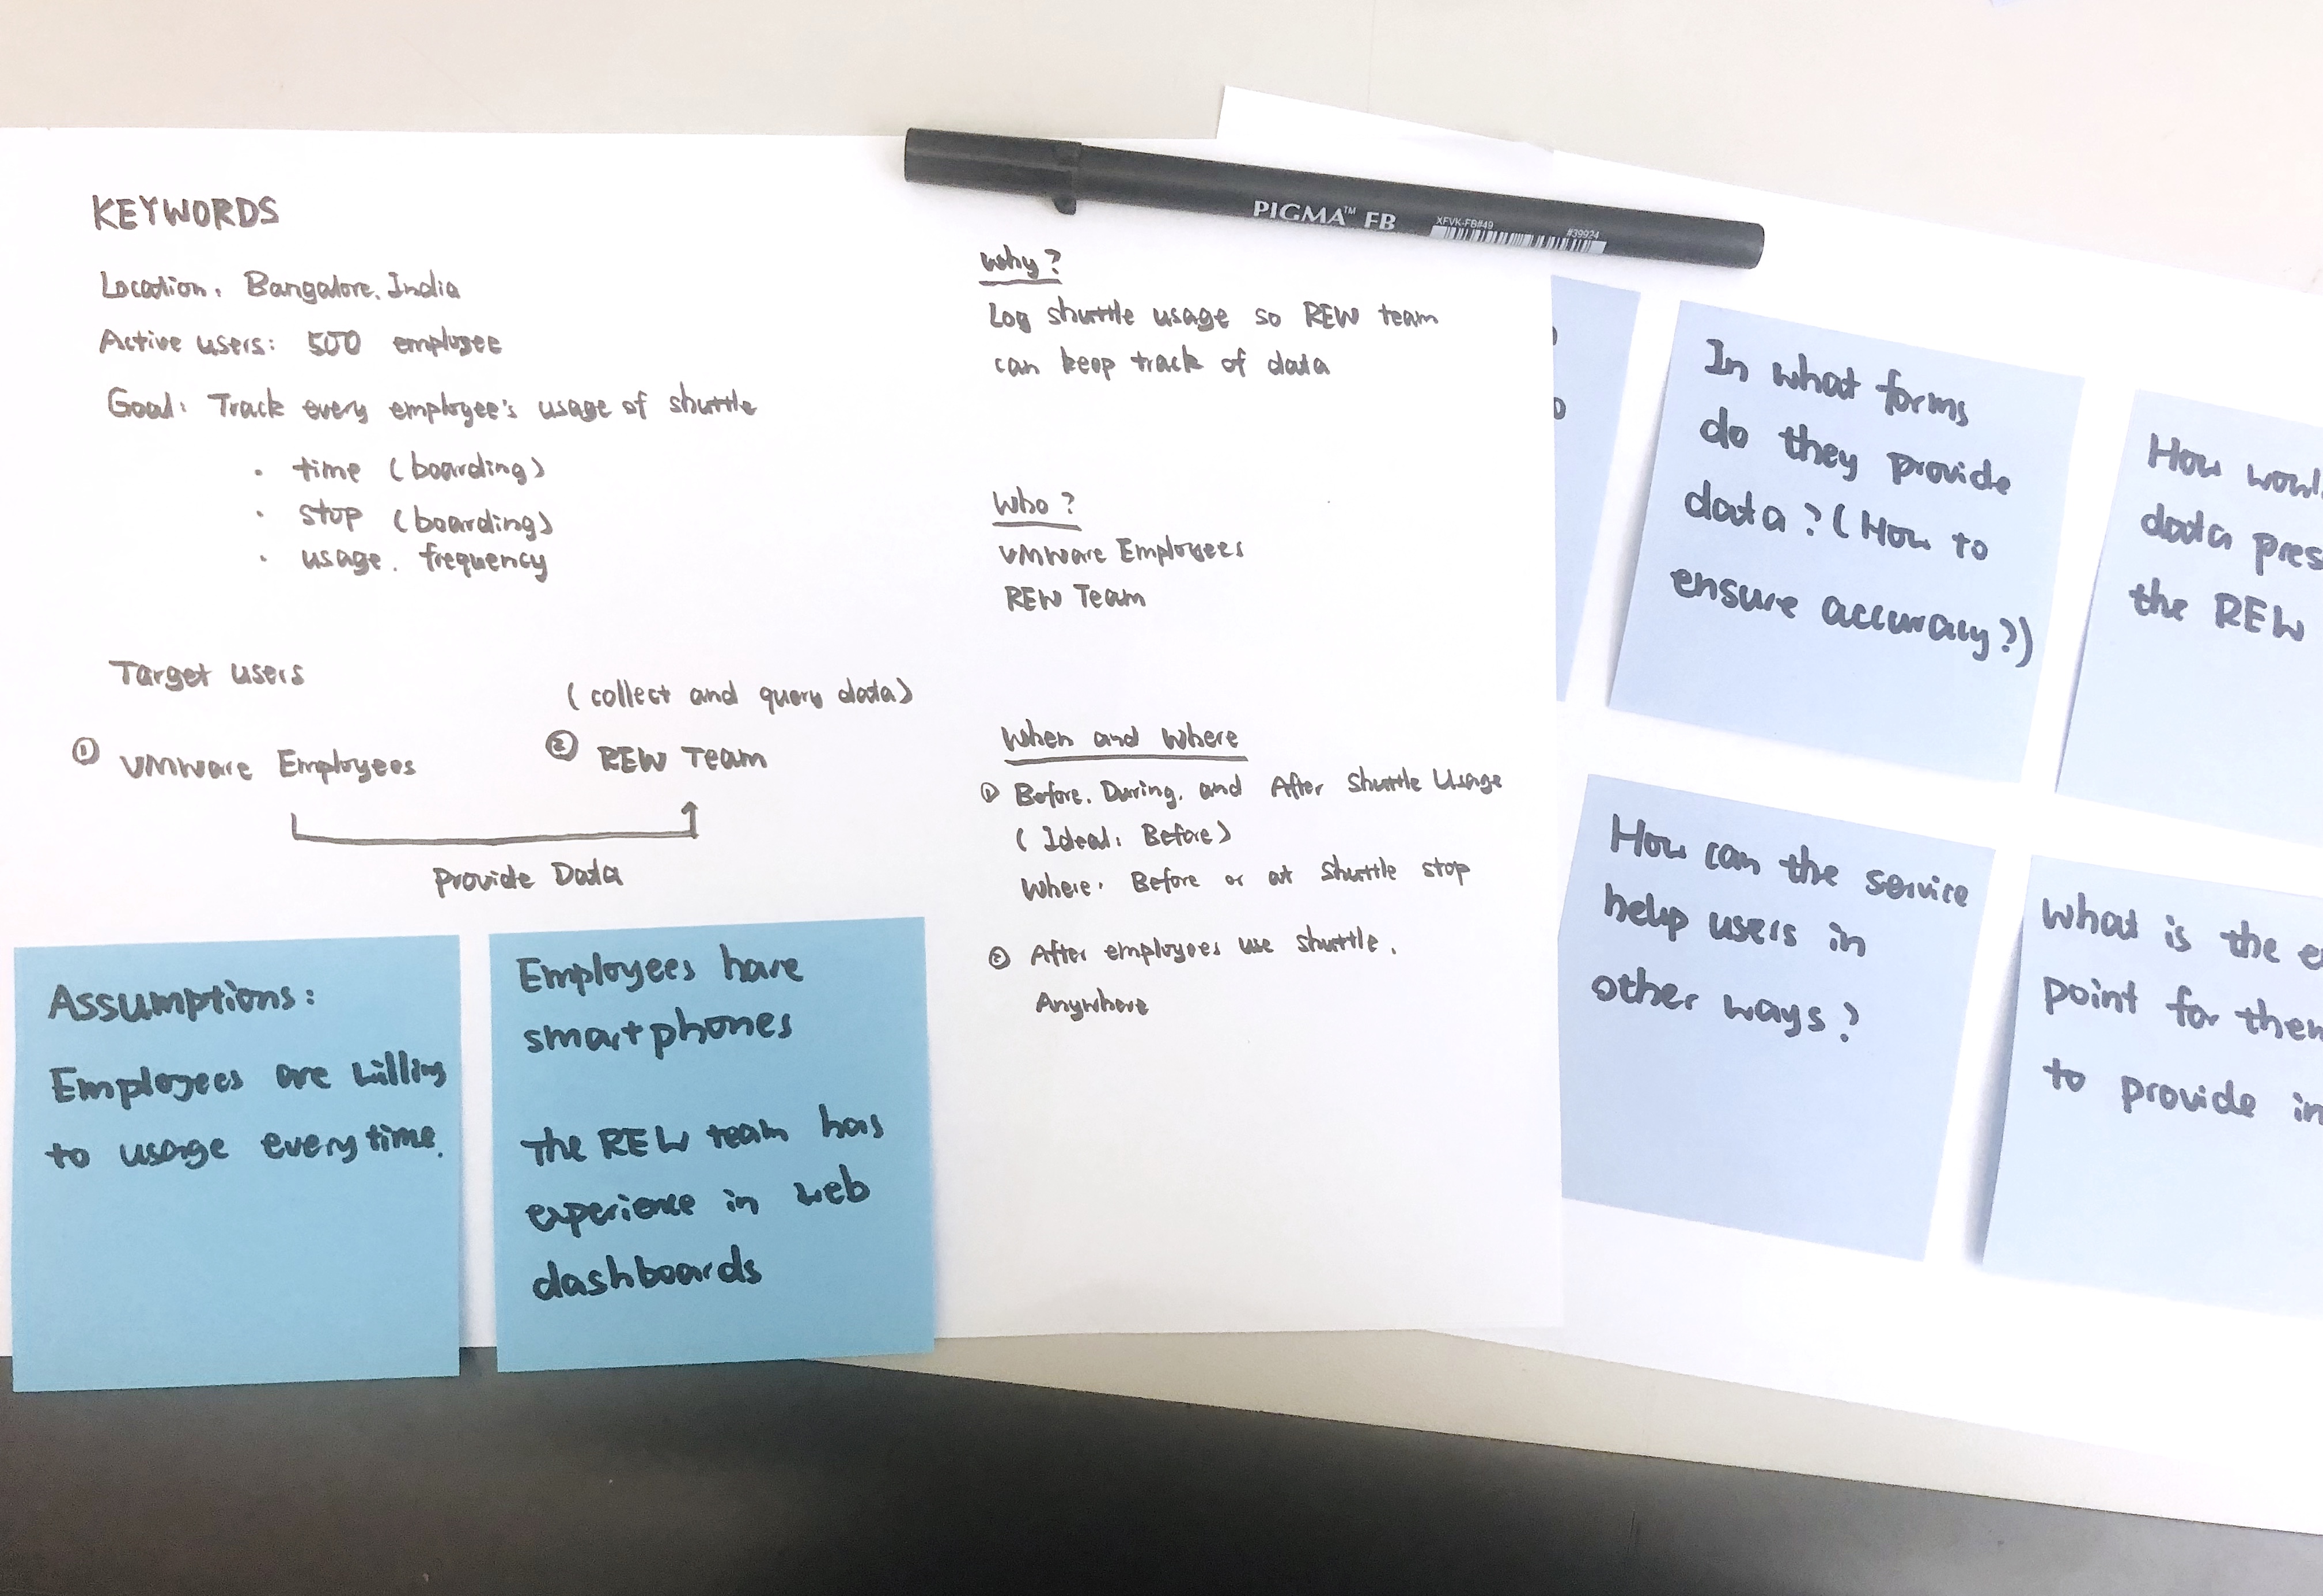 KEYWORDS
Location: Bangalore, India
Active users: 500 employee
Goal: Track every employee's usage of shuttle
• time (boarding)
• stop (boarding)
• usage. frequency
Target users
(collect and query data)
① VMware Employees
② REW Team
Provide Data
Assumptions:
Employees are willing
to usage every time.
Employees have
smartphones
The REW team has
experience in web
dashboards
PIGMA™ FB
XFVK-FB#49
#39924
Why?
Log shuttle usage so REW team
can keep track of data
Who?
VMware Employees
REW Team
When and Where
① Before, During, and After Shuttle Usage
(Ideal: Before)
Where: Before or at Shuttle stop
② After employees use shuttle.
Anywhere
In what forms
do they provide
data? (How to
ensure accuracy?)
How
data
the REW
How can the service
help users in
other ways?
What is the
point for
to provide